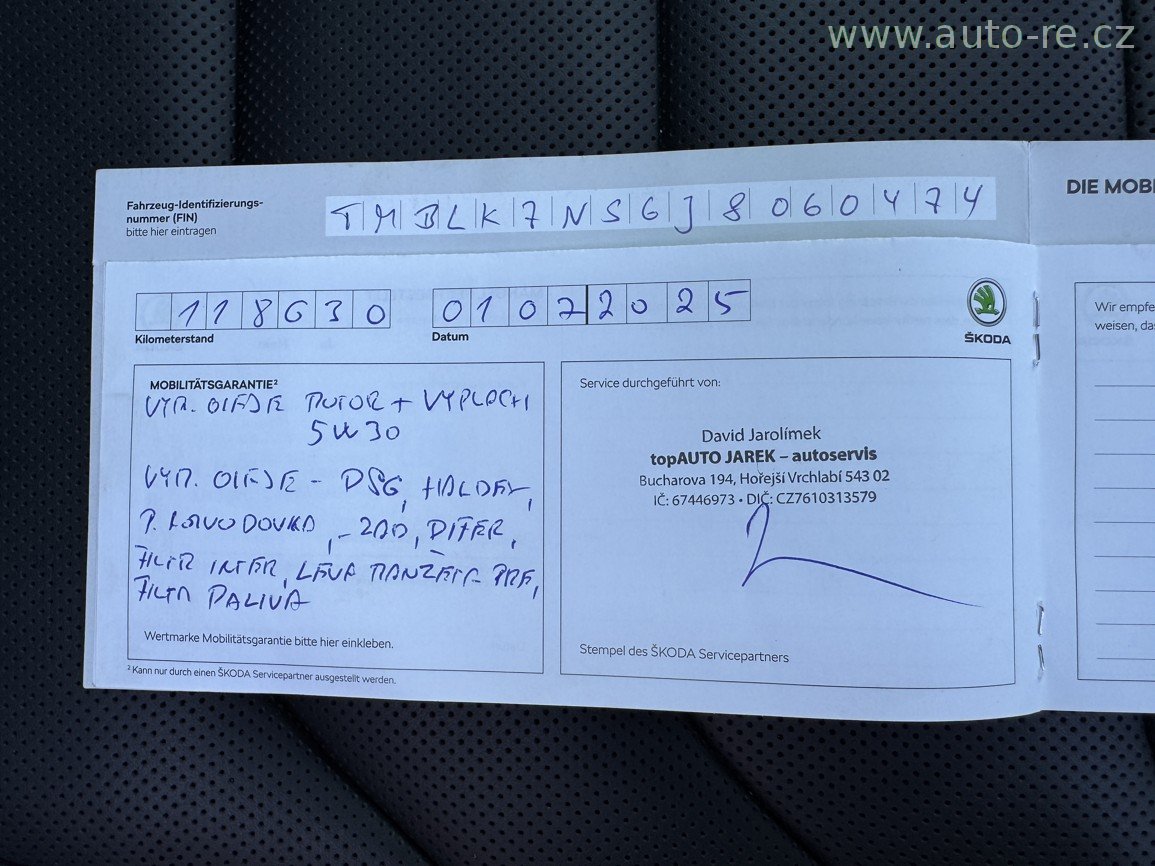 www.auto-re.cz
DIE MOBI
Fahrzeug-Identifizierungs-
nummer (FIN)
bitte hier eintragen
TMBLK7NS6J8060474
118630
Kilometerstand
01072025
Datum
ŠKODA
Wir empfe
weisen, das
MOBILITÄTSGARANTIE²
VÝM. OLEJE MOTOR + VÝPLACH
5W30
VÝM. OLEJE - DSG, HALDEX,
P. ROZVODOVKA, - ZAD, DIFER,
FILTR INTER, LEVÁ MANŽETA PŘE,
FILTR PALIVA
Wertmarke Mobilitätsgarantie bitte hier einkleben.
² Kann nur durch einen ŠKODA Servicepartner ausgestellt werden.
Service durchgeführt von:
David Jarolímek
topAUTO JAREK – autoservis
Bucharova 194, Hořejší Vrchlabí 543 02
IČ: 67446973 • DIČ: CZ7610313579
Stempel des ŠKODA Servicepartners